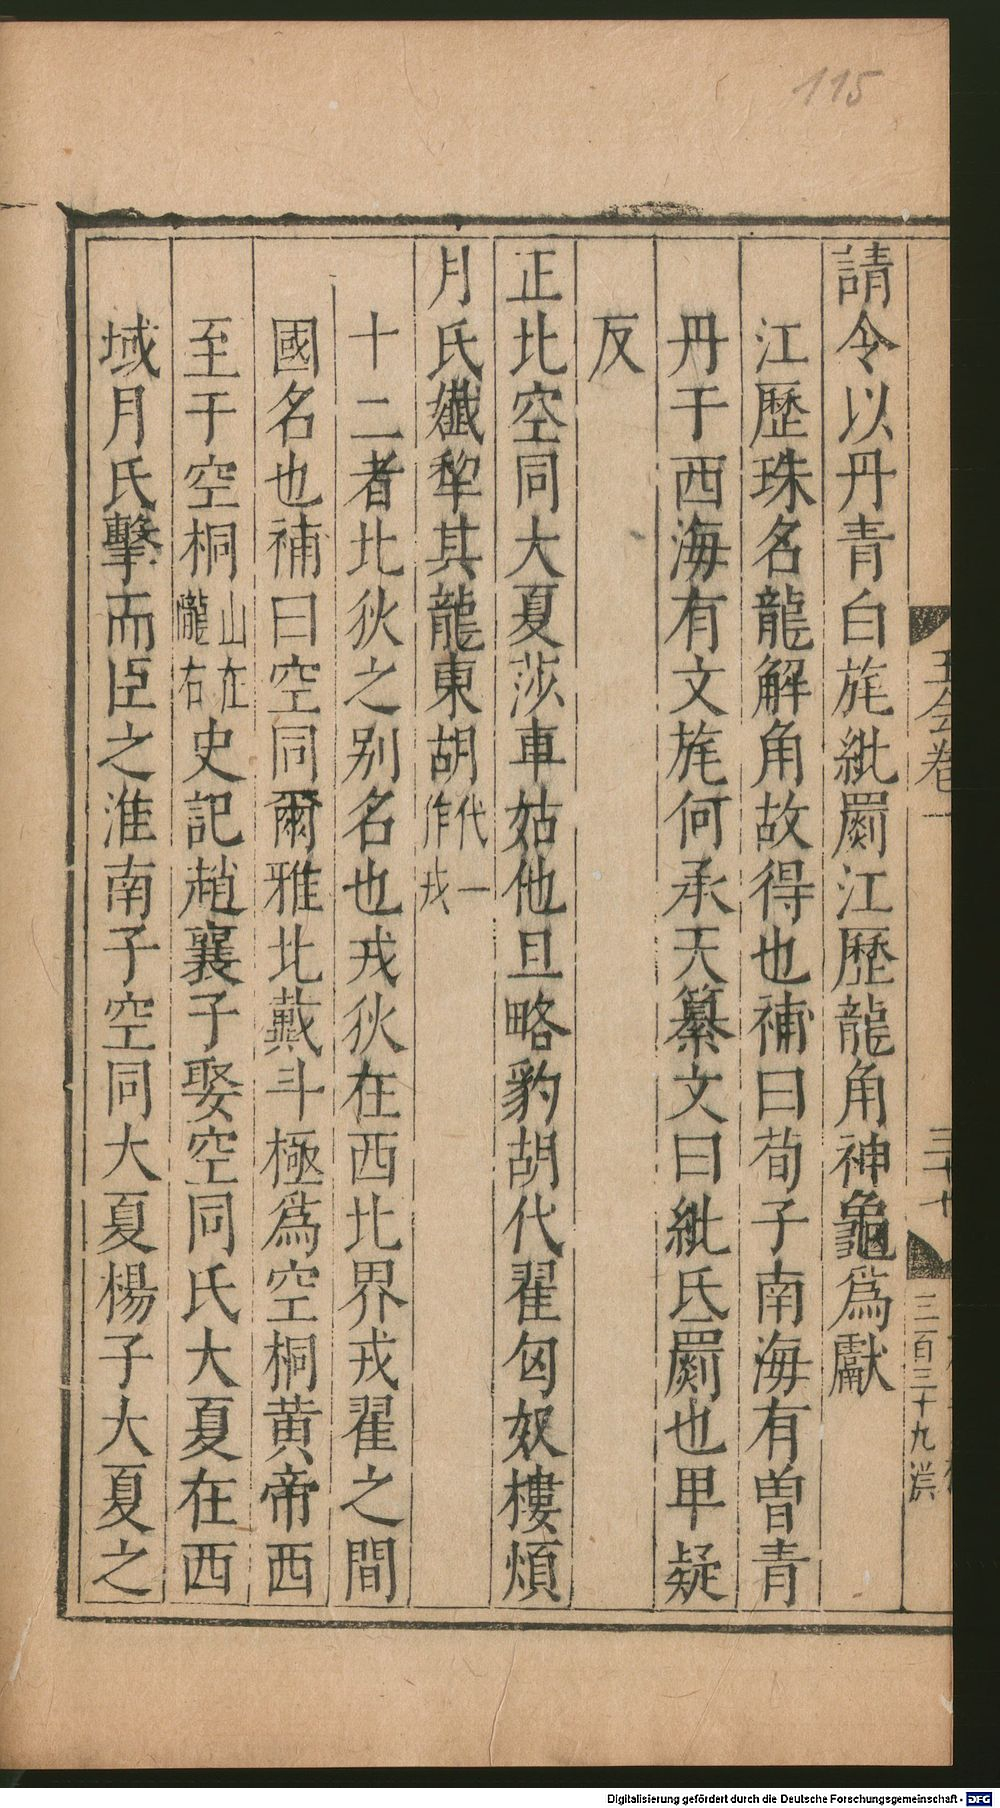 115
請令以丹青白旄紕罽江歷龍角神龜爲獻
江歷珠名龍解角故得也補曰荀子南海有曾青
丹干西海有文旄何承天纂文曰紕氐罽也卑疑
反
正北空同大夏莎車姑他旦略豹胡代翟匈奴樓煩
月氏孅犂其龍東胡代一作戎
十二者北狄之别名也戎狄在西北界戎翟之間
國名也補曰空同爾雅北戴斗極爲空桐黄帝西
至于空桐山在隴右史記趙襄子娶空同氏大夏在西
域月氏擊而臣之淮南子空同大夏楊子大夏之
王会卷一
三十七
三百三十九
Digitalisierung gefördert durch die Deutsche Forschungsgemeinschaft - DFG